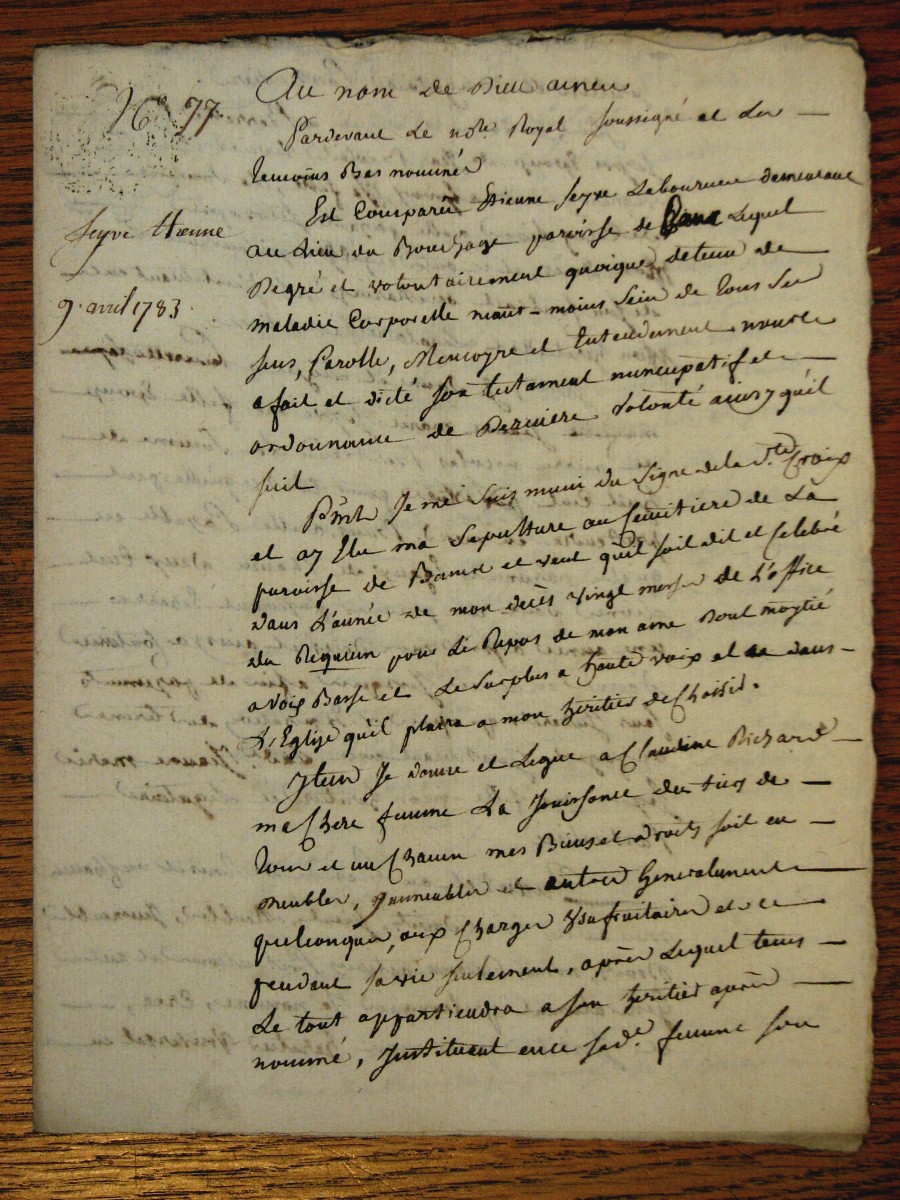 No 77
Seyve Etienne
9. avril 1783
Au nom de Dieu amen
Pardevant Le note Royal soussigné et Les
temoins Bas nommés
Est Comparû Etienne Seyve Laboureur demeurant
au Lieu du Bouchage paroisse de Lequel
Degré et volontairement quoique detenu de
maladie Corporelle neant-moins Sein de tous Ses
sens, Parolle, Memoyre et Entendement nous a
a fait et dicté son testament nuncupatif et
ordonnance de Derniere volonté ainsy qu'il
suit
Pmt Je me suis muni du Signe de la Ste Croix
et ay Elu ma Sepulture au Cemitiere de La
paroisse de et veut qu'il soit dit et Celebré
dans L'année de mon decès vingt messes de L'office
du Requiem pour Le Repos de mon ame Dont moytié
a voix Basse et Le Surplus a haute voix et dans
L'Eglise qu'il plaira a mon heritier de Choisir.
Item Je donne et Legue a Claudine Richard
ma Chere femme La Jouissance du tiers de
tous et un Chacun mes Biens et droits soit en
meubles, immeubles et autres Generalement
quelconques, aux Charges Usufruitaires et ce
pendant sa vie seulement, après Lequel tems
Le tout appartiendra a son heritier après
nommé, Instituant en ce sade. femme son